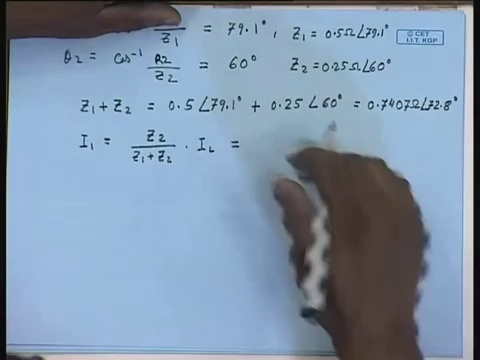 /Z₁ = 79.1°, Z₁ = 0.5Ω∠79.1°
© CET
I.I.T. KGP
θ₂ = Cos⁻¹ R₂/Z₂ = 60° Z₂ = 0.25Ω∠60°
Z₁ + Z₂ = 0.5∠79.1° + 0.25∠60° = 0.7407Ω∠72.8°
I₁ = Z₂/(Z₁+Z₂) · I_L =